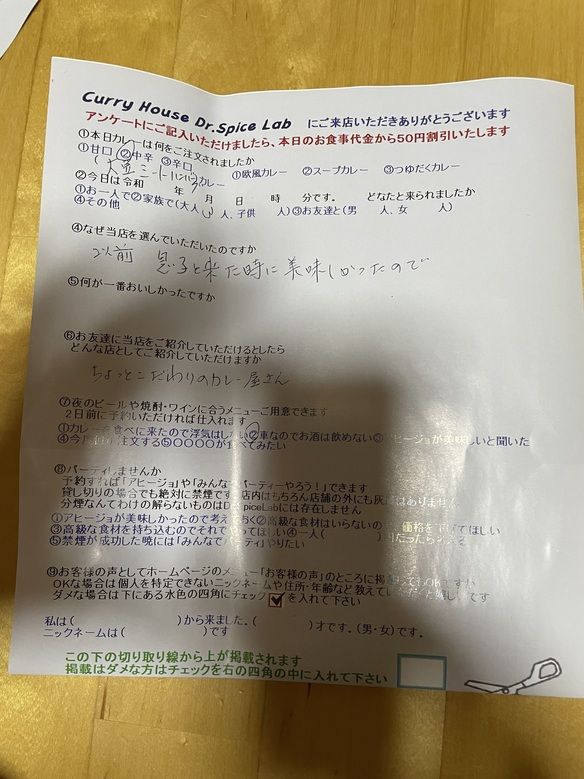 Curry House Dr.Spice Lab にご来店いただきありがとうございます
アンケートにご記入いただけましたら、本日のお食事代金から50円割引いたします
①本日カレーは何をご注文されましたか
①甘口 ②中辛 ③辛口
( カレー ①欧風カレー ②スープカレー ③つゆだくカレー
②今日は令和 年 月 日 時 分です。 どなたと来られましたか
①お一人で②家族で(大人 人、子供 人)③お友達と(男 人、女 人)
④その他
④なぜ当店を選んでいただいたのですか
以前 息子と来た時に美味しかったので
⑤何が一番おいしかったですか
⑥お友達に当店をご紹介していただけるとしたら
どんな店としてご紹介していただけますか
ちょっとこだわりのカレー屋さん
⑦夜のビールや焼酎・ワインに合うメニューご用意できます
2日前に予約いただければ仕入れます
①カレーを食べに来たので浮気はしない②車なのでお酒は飲めない③アヒージョが美味しいと聞いた
④今月 注文する⑤〇〇〇〇が食べてみたい
⑧パーティしませんか
予約すれば「アヒージョ」や「みんなでパーティーやろう!」できます
貸し切りの場合でも絶対に禁煙です店内はもちろん店舗の外にも灰皿はありません
分煙なんてわけの解らないものはDr.SpiceLabには存在しません
①アヒージョが美味しかったので考えておく②高級な食材はいらないので 価格を下げてほしい
③高級な食材を持ち込むのでそれでやってほしい④一人( )円だったら考える
⑤禁煙が成功した暁には「みんなでパーティ」やりたい
⑨お客様の声としてホームページのメニュー「お客様の声」のところに掲載してもOKですか
OKな場合は個人を特定できないニックネームや住所・年齢など教えていただくと嬉しいです
ダメな場合は下にある水色の四角にチェック を入れて下さい
私は( )から来ました。( )才です。(男・女)です。
ニックネームは( )です
この下の切り取り線から上が掲載されます
掲載はダメな方はチェックを右の四角の中に入れて下さい